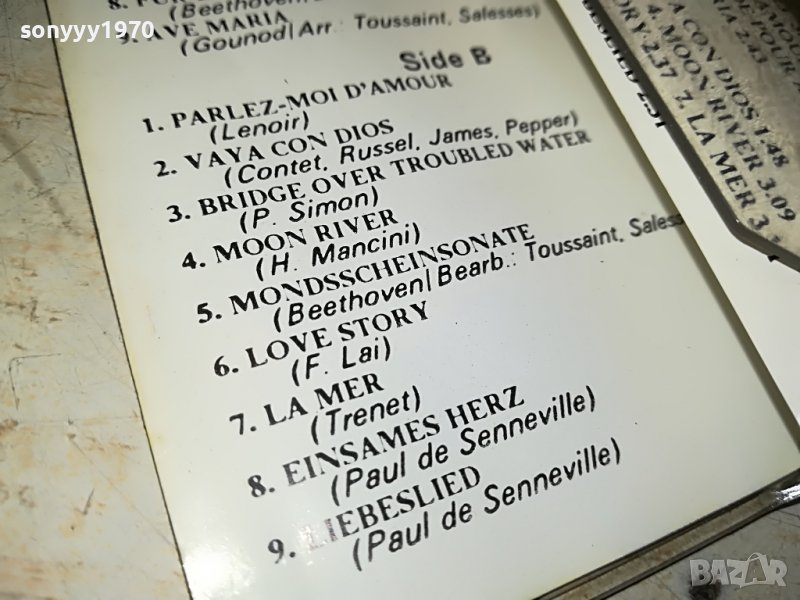 sonyyy1970
(Beethoven/
9. AVE MARIA
(Gounod/Arr.: Toussaint, Salesses)
Side B
1. PARLEZ-MOI D'AMOUR
(Lenoir)
2. VAYA CON DIOS
(Contet, Russel, James, Pepper)
3. BRIDGE OVER TROUBLED WATER
(P. Simon)
4. MOON RIVER
(H. Mancini)
5. MONDSSCHEINSONATE
(Beethoven/Bearb.: Toussaint, Saless
6. LOVE STORY
(F. Lai)
7. LA MER
(Trenet)
8. EINSAMES HERZ
(Paul de Senneville)
9. LIEBESLIED
(Paul de Senneville)
CON DIOS 1.48
4. MOON RIVER 3.09
2.37 7. LA MER 3
2.43
POUR
2.31
BAZAR